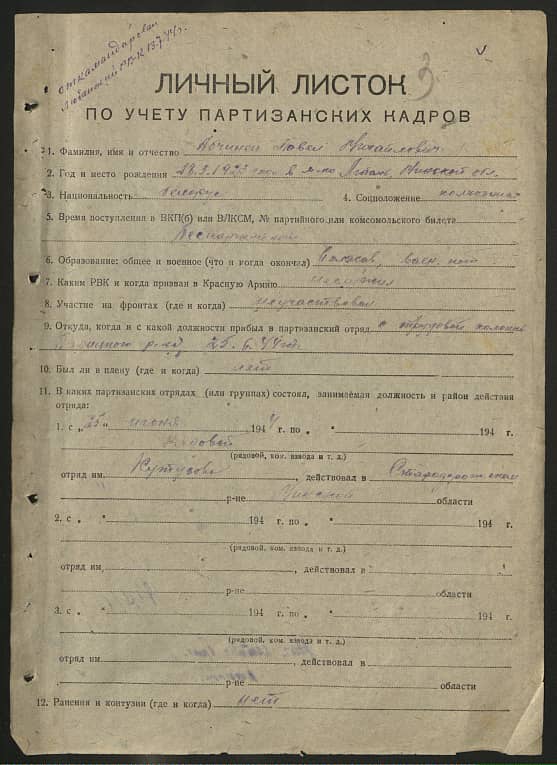 откомандирован
Любанский РВК 13.7.44 г.
3
ЛИЧНЫЙ ЛИСТОК
ПО УЧЕТУ ПАРТИЗАНСКИХ КАДРОВ
1. Фамилия, имя и отчество Павел Михайлович
2. Год и место рождения 1923 года в Минской обл.
3. Национальность белорус 4. Соцположение колхозник
5. Время поступления в ВКП(б) или ВЛКСМ, № партийного или комсомольского билета
беспартийный
6. Образование: общее и военное (что и когда окончил) воен. нет
7. Каким РВК и когда призван в Красную Армию не служил
8. Участие на фронтах (где и когда) не участвовал
9. Откуда, когда и с какой должности прибыл в партизанский отряд с трудовой колонны
25.6.44 г.
10. Был ли в плену (где и когда) нет
11. В каких партизанских отрядах (или группах) состоял, занимаемая должность и район действия
отряда:
1. с „25" июня 1944 г. по „ " 194 г.
рядовой
(рядовой, ком. взвода и т. д.)
отряд им. Кутузова, действовал в Стародорожском
р-не Минской области
2. с „ " 194 г. по „ " 194 г.
(рядовой, ком. взвода и т. д.)
отряд им. , действовал в
р-не области
3. с „ " 194 г. по „ " 194 г.
(рядовой, ком. взвода и т. д.)
отряд им. , действовал в
р-не области
12. Ранения и контузии (где и когда) нет